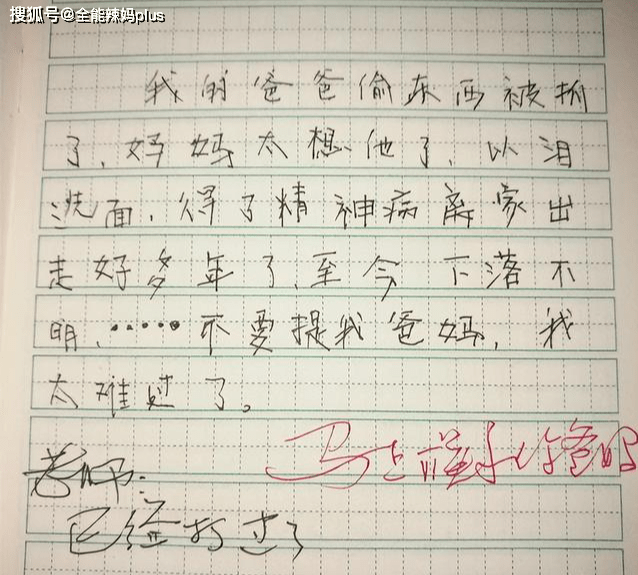 搜狐号@全能辣妈plus
我的爸爸偷东西被抓
了，妈妈太想他了，以泪
洗面，得了精神病离家出
走好多年了，至今下落不
明，……不要提我爸妈，我
太难过了。
马上你爸
老师：
已经打过了